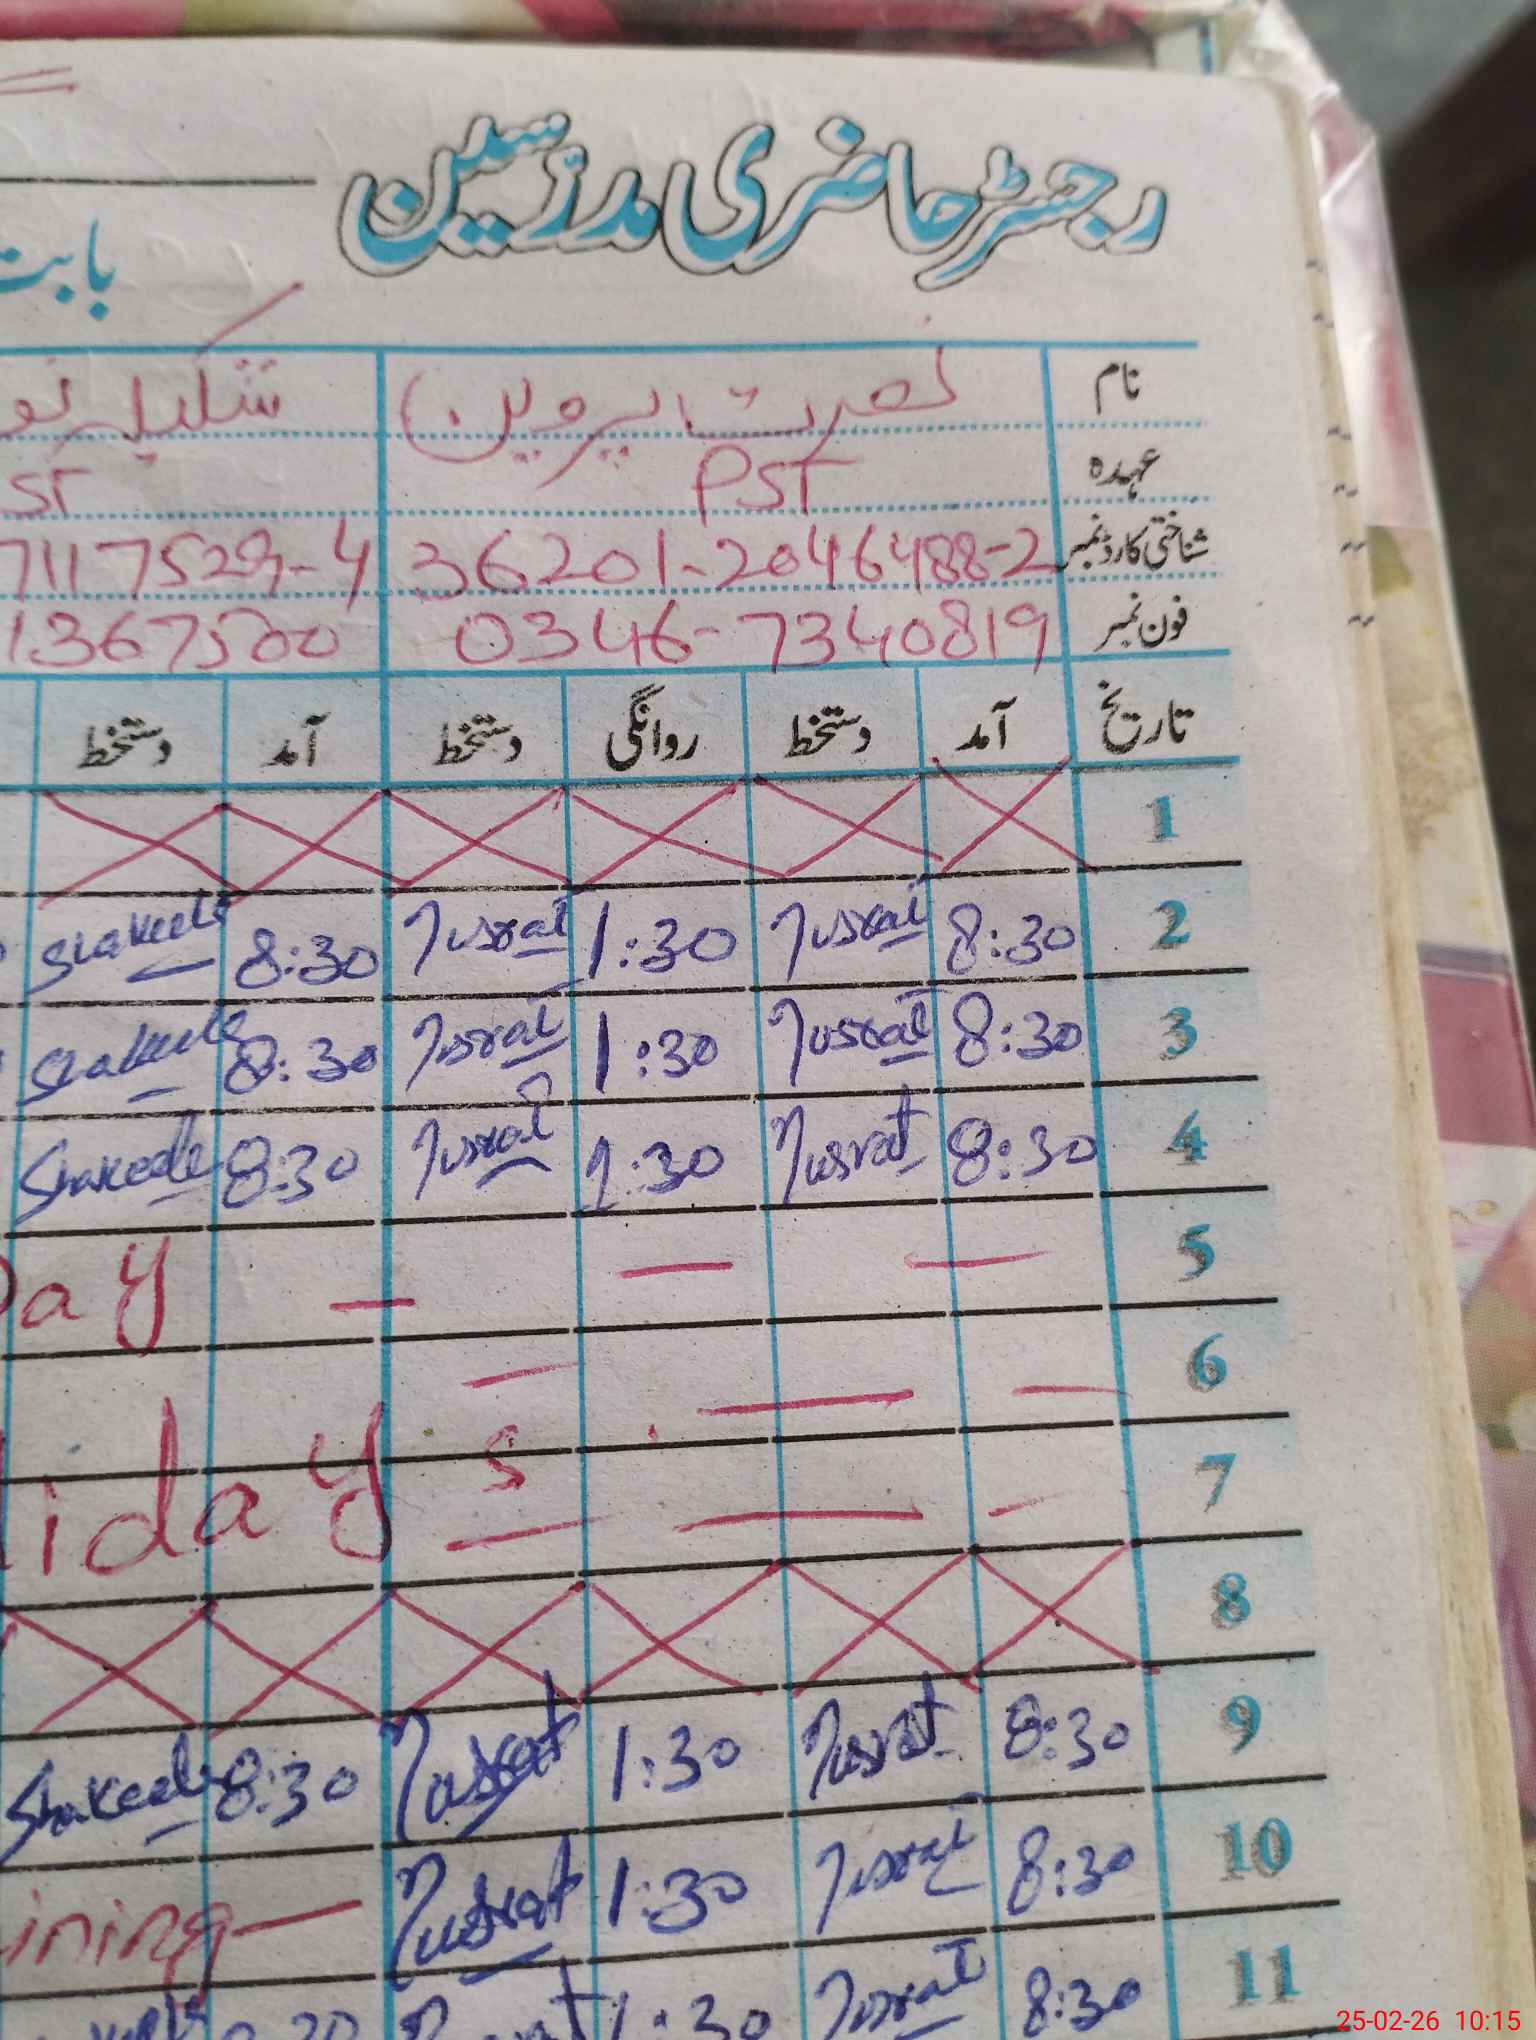 رجسٹر حاضری مدرّسین
بابت
نام نصرت پروین شکیلہ
عہدہ PST ST
شناختی کارڈ نمبر 36201-2046488-2 7117529-4
فون نمبر 0346-7340819 1367500
تاریخ آمد دستخط روانگی دستخط آمد دستخط
1
2 8:30 Nusrat 1:30 Nusrat 8:30 Shakeela
3 8:30 Nusrat 1:30 Nusrat 8:30 Shakeela
4 8:30 Nusrat 1:30 Nusrat 8:30 Shakeela
5 — — — Day
6 — — —
7 — — — liday s
8
9 8:30 Nusrat 1:30 Nusrat 8:30 Shakeela
10 8:30 Nusrat 1:30 Nusrat ining —
11 8:30 Nusrat 1:30
25-02-26 10:15